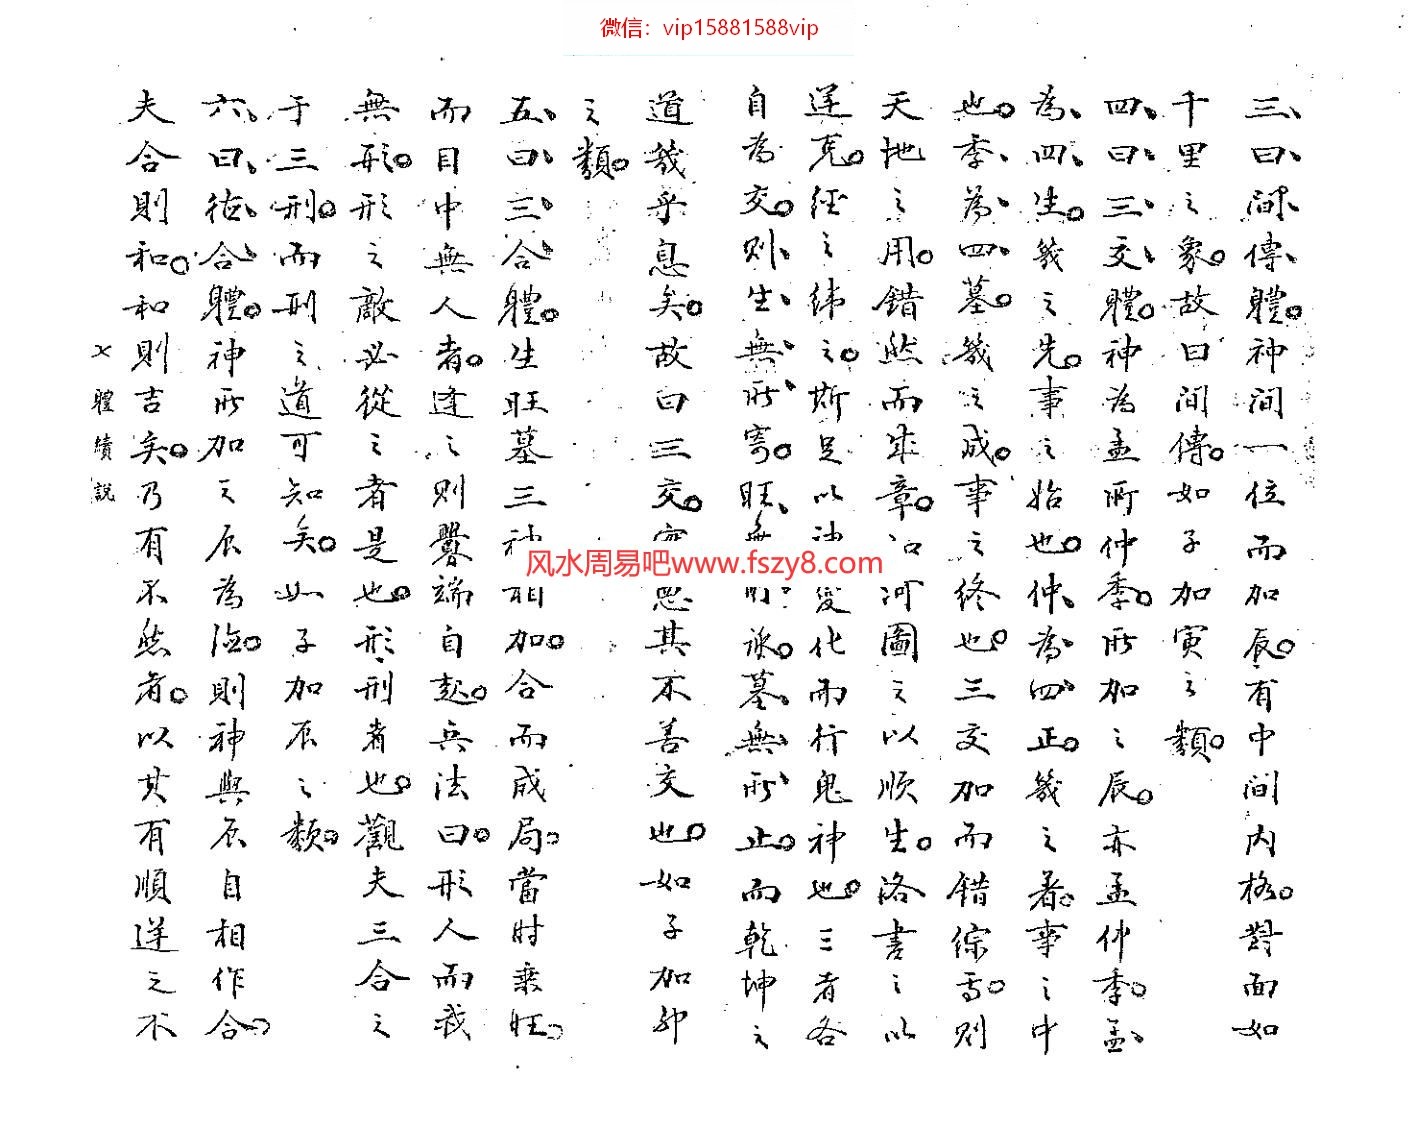 微信：vip15881588vip
三、曰、間、傳、體。神間一位而加辰。有中間内格。對面如
千里之象。故曰間傳。如子加寅之類。
四、曰、三、交、體。神為孟所仲季。所加之辰。亦孟仲季。孟、
為、四、生。幾之先。事之始也。仲、為、四、正。幾之著。事之中
也。季、為、四、墓。幾之成。事之終也。三交加而錯綜焉。则
天地之用。錯然而成章。河圖之以順生。洛書之以
逆克。經之纬之。斯足以变化而行鬼神也。三者各
自為交。则、生、無、所、寄。旺、無、所、承。墓、無、所、止。而乾坤之
道幾乎息矣。故曰三交。其不善交也。如子加卯
之類。
五、曰、三、合、體。生旺墓三神相加。合而成局。當时乘旺。
而目中無人者。逢之则釁端自起。兵法曰。形人而我
無形。形之敵必從之者是也。形、刑者也。觀夫三合之
于三刑。而刑之道可知矣。如子加辰之類。
六、曰、德、合、體。神所加之辰為德。則神與辰自相作合。
夫合則和。和則吉矣。乃有不然者。以其有順逆之不
體續說
风水周易吧www.fszy8.com